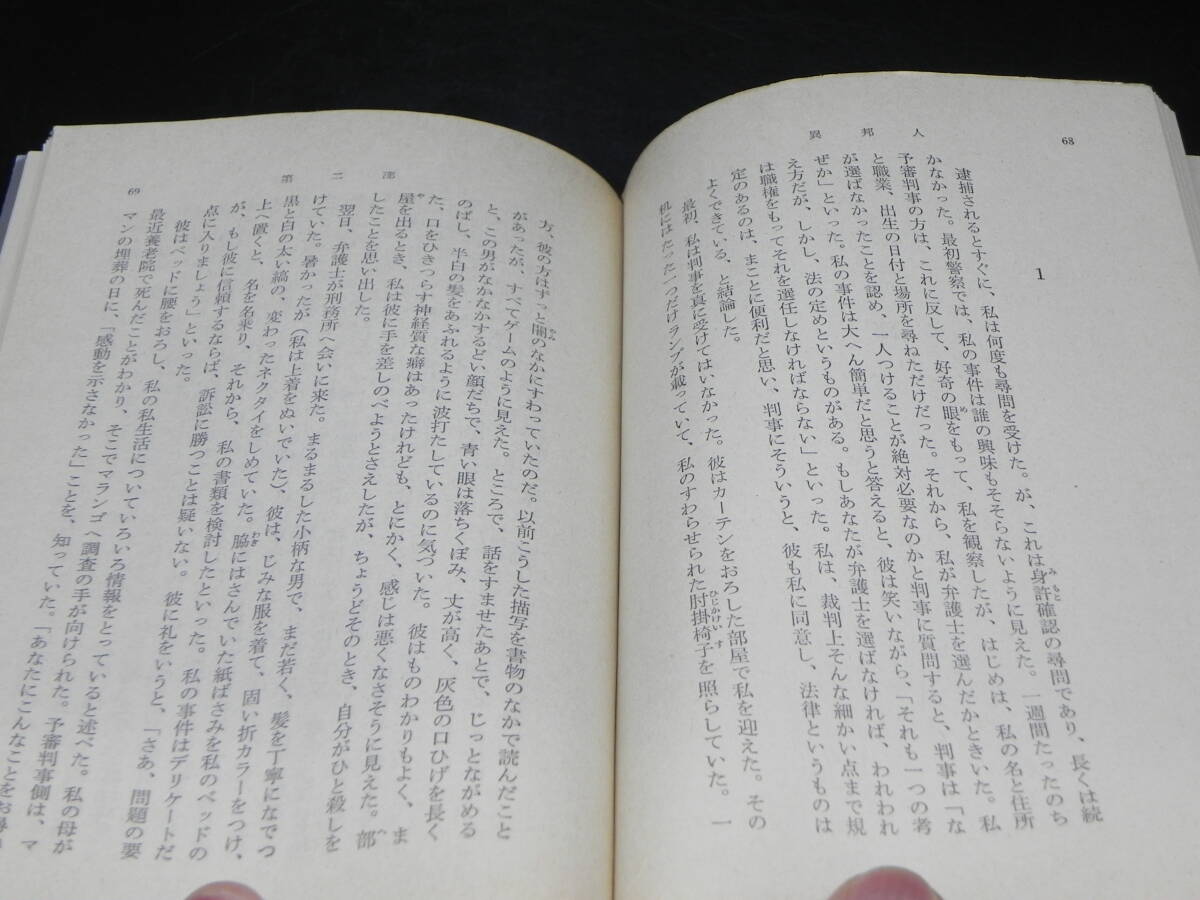 異邦人
68
1
逮捕されるとすぐに、私は何度も尋問を受けた。が、これは身許確認の尋問であり、長くは続
かなかった。最初警察では、私の事件は誰の興味もそそらないように見えた。一週間たったのち
予審判事の方は、これに反して、好奇の眼をもって、私を観察したが、はじめは、私の名と住所
と職業、出生の日付と場所を尋ねただけだった。それから、私が弁護士を選んだかときいた。私
が選ばなかったことを認め、一人つけることが絶対必要なのかと判事に質問すると、判事は「な
ぜか」といった。私の事件は大へん簡単だと思うと答えると、彼は笑いながら、「それも一つの考
え方だが、しかし、法の定めというものがある。もしあなたが弁護士を選ばなければ、われわれ
は職権をもってそれを選任しなければならない」といった。私は、裁判上そんな細かい点まで規
定のあるのは、まことに便利だと思い、判事にそういうと、彼も私に同意し、法律というものは
よくできている、と結論した。
最初、私は判事を真に受けてはいなかった。彼はカーテンをおろした部屋で私を迎えた。その
机にはたった一つだけランプが載っていて、私のすわらせられた肘掛椅子を照らしていた。一
第二部
69
方、彼の方はずっと闇のなかにすわっていたのだ。以前こうした描写を書物のなかで読んだこと
があったが、すべてゲームのように見えた。ところで、話をすませたあとで、じっとながめる
と、この男がなかなかするどい顔だちで、青い眼は落ちくぼみ、丈が高く、灰色の口ひげを長く
のばし、半白の髪をあふれるように波打たしているのに気づいた。彼はものわかりもよく、ま
た、口をひきつらす神経質な癖はあったけれども、とにかく、感じは悪くなさそうに見えた。部
屋を出るとき、私は彼に手を差しのべようとさえしたが、ちょうどそのとき、自分がひと殺しを
したことを思い出した。
翌日、弁護士が刑務所へ会いに来た。まるまるした小柄な男で、まだ若く、髪を丁寧になでつ
けていた。暑かったが（私は上着をぬいでいた）、彼は、じみな服を着て、固い折カラーをつけ、
黒と白の太い縞の、変わったネクタイをしめていた。脇にはさんでいた紙ばさみを私のベッドの
上へ置くと、名を名乗り、それから、私の書類を検討したといった。私の事件はデリケートだ
が、もし彼に信頼するならば、訴訟に勝つことは疑いない。彼に礼をいうと、「さあ、問題の要
点に入りましょう」といった。
彼はベッドに腰をおろし、私の私生活についていろいろ情報をとっていると述べた。私の母が
最近養老院で死んだことがわかり、そこでマランゴへ調査の手が向けられた。予審判事側は、マ
マンの埋葬の日に、「感動を示さなかった」ことを、知っていた。「あなたにこんなことをお尋